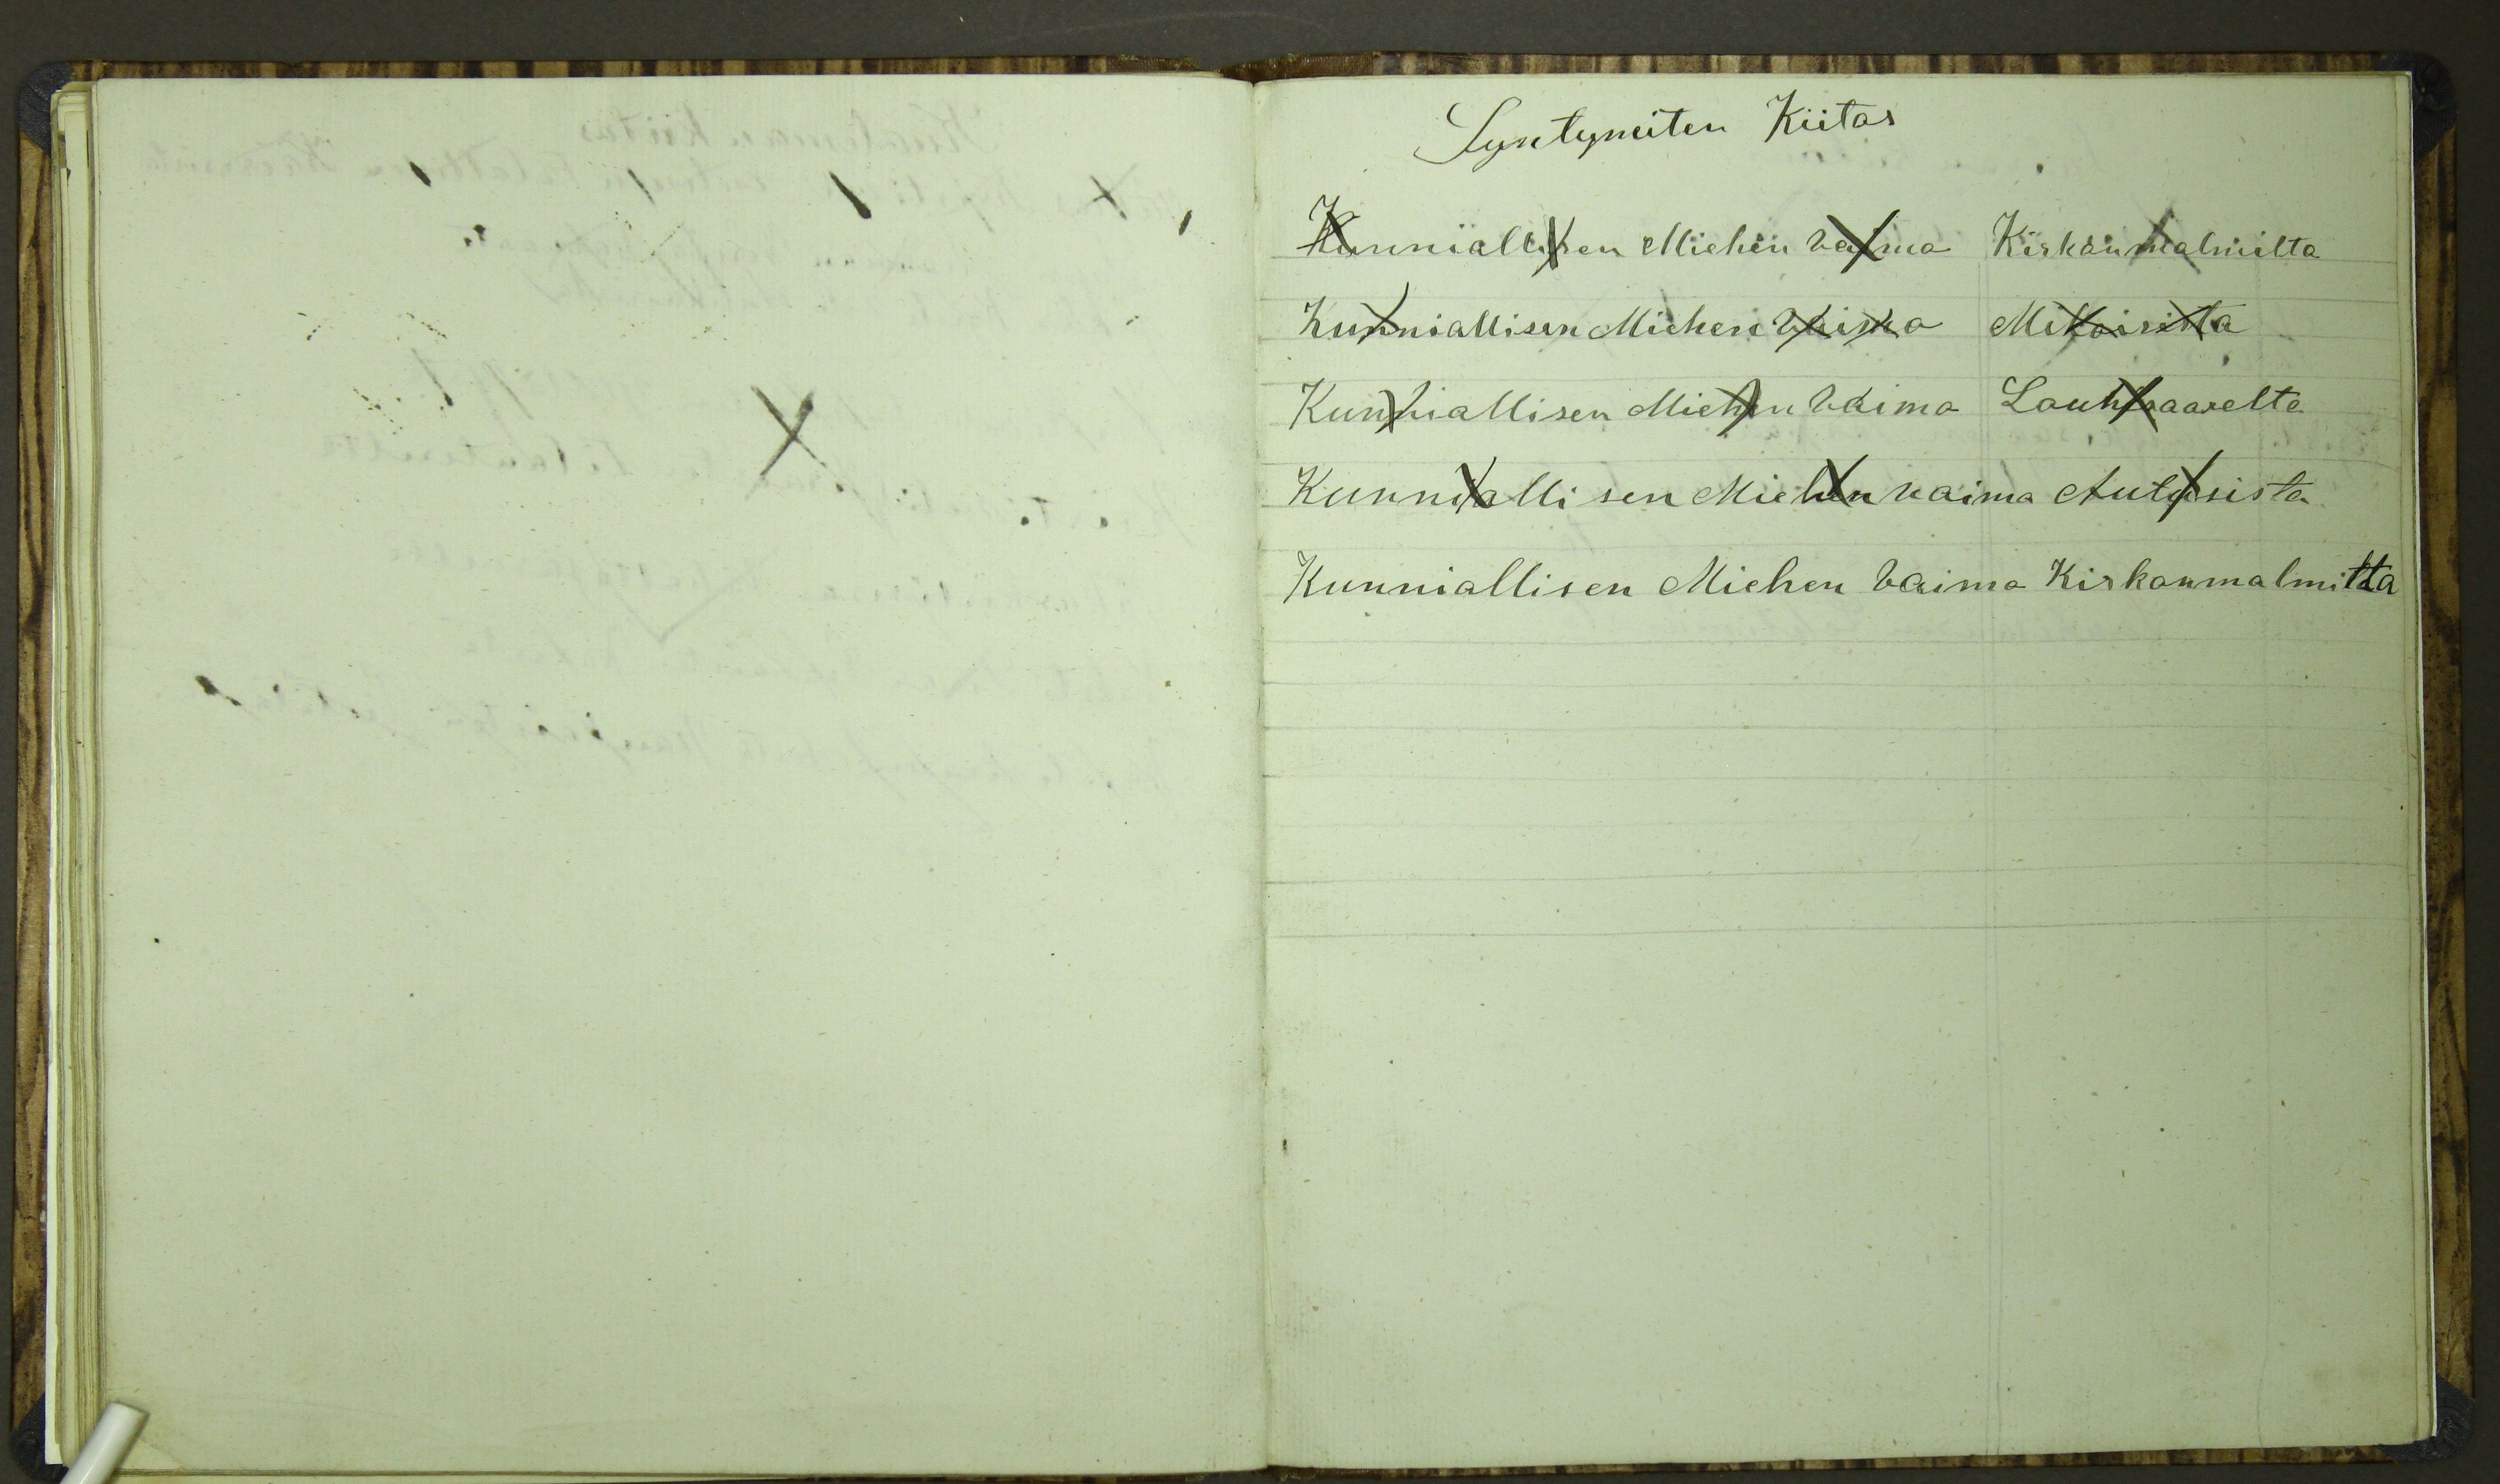 Syntyneiten Kiitos
Kunniallisen Miehen Vaimo Kirkonmalmilta
Kunniallisen Miehen Vaimo Mikoisista
Kunniallisen Miehen Vaimo Lauhsaarelta
Kunniallisen Miehen vaimo Autoisista
Kunniallisen Miehen Vaimo Kirkonmalmilta